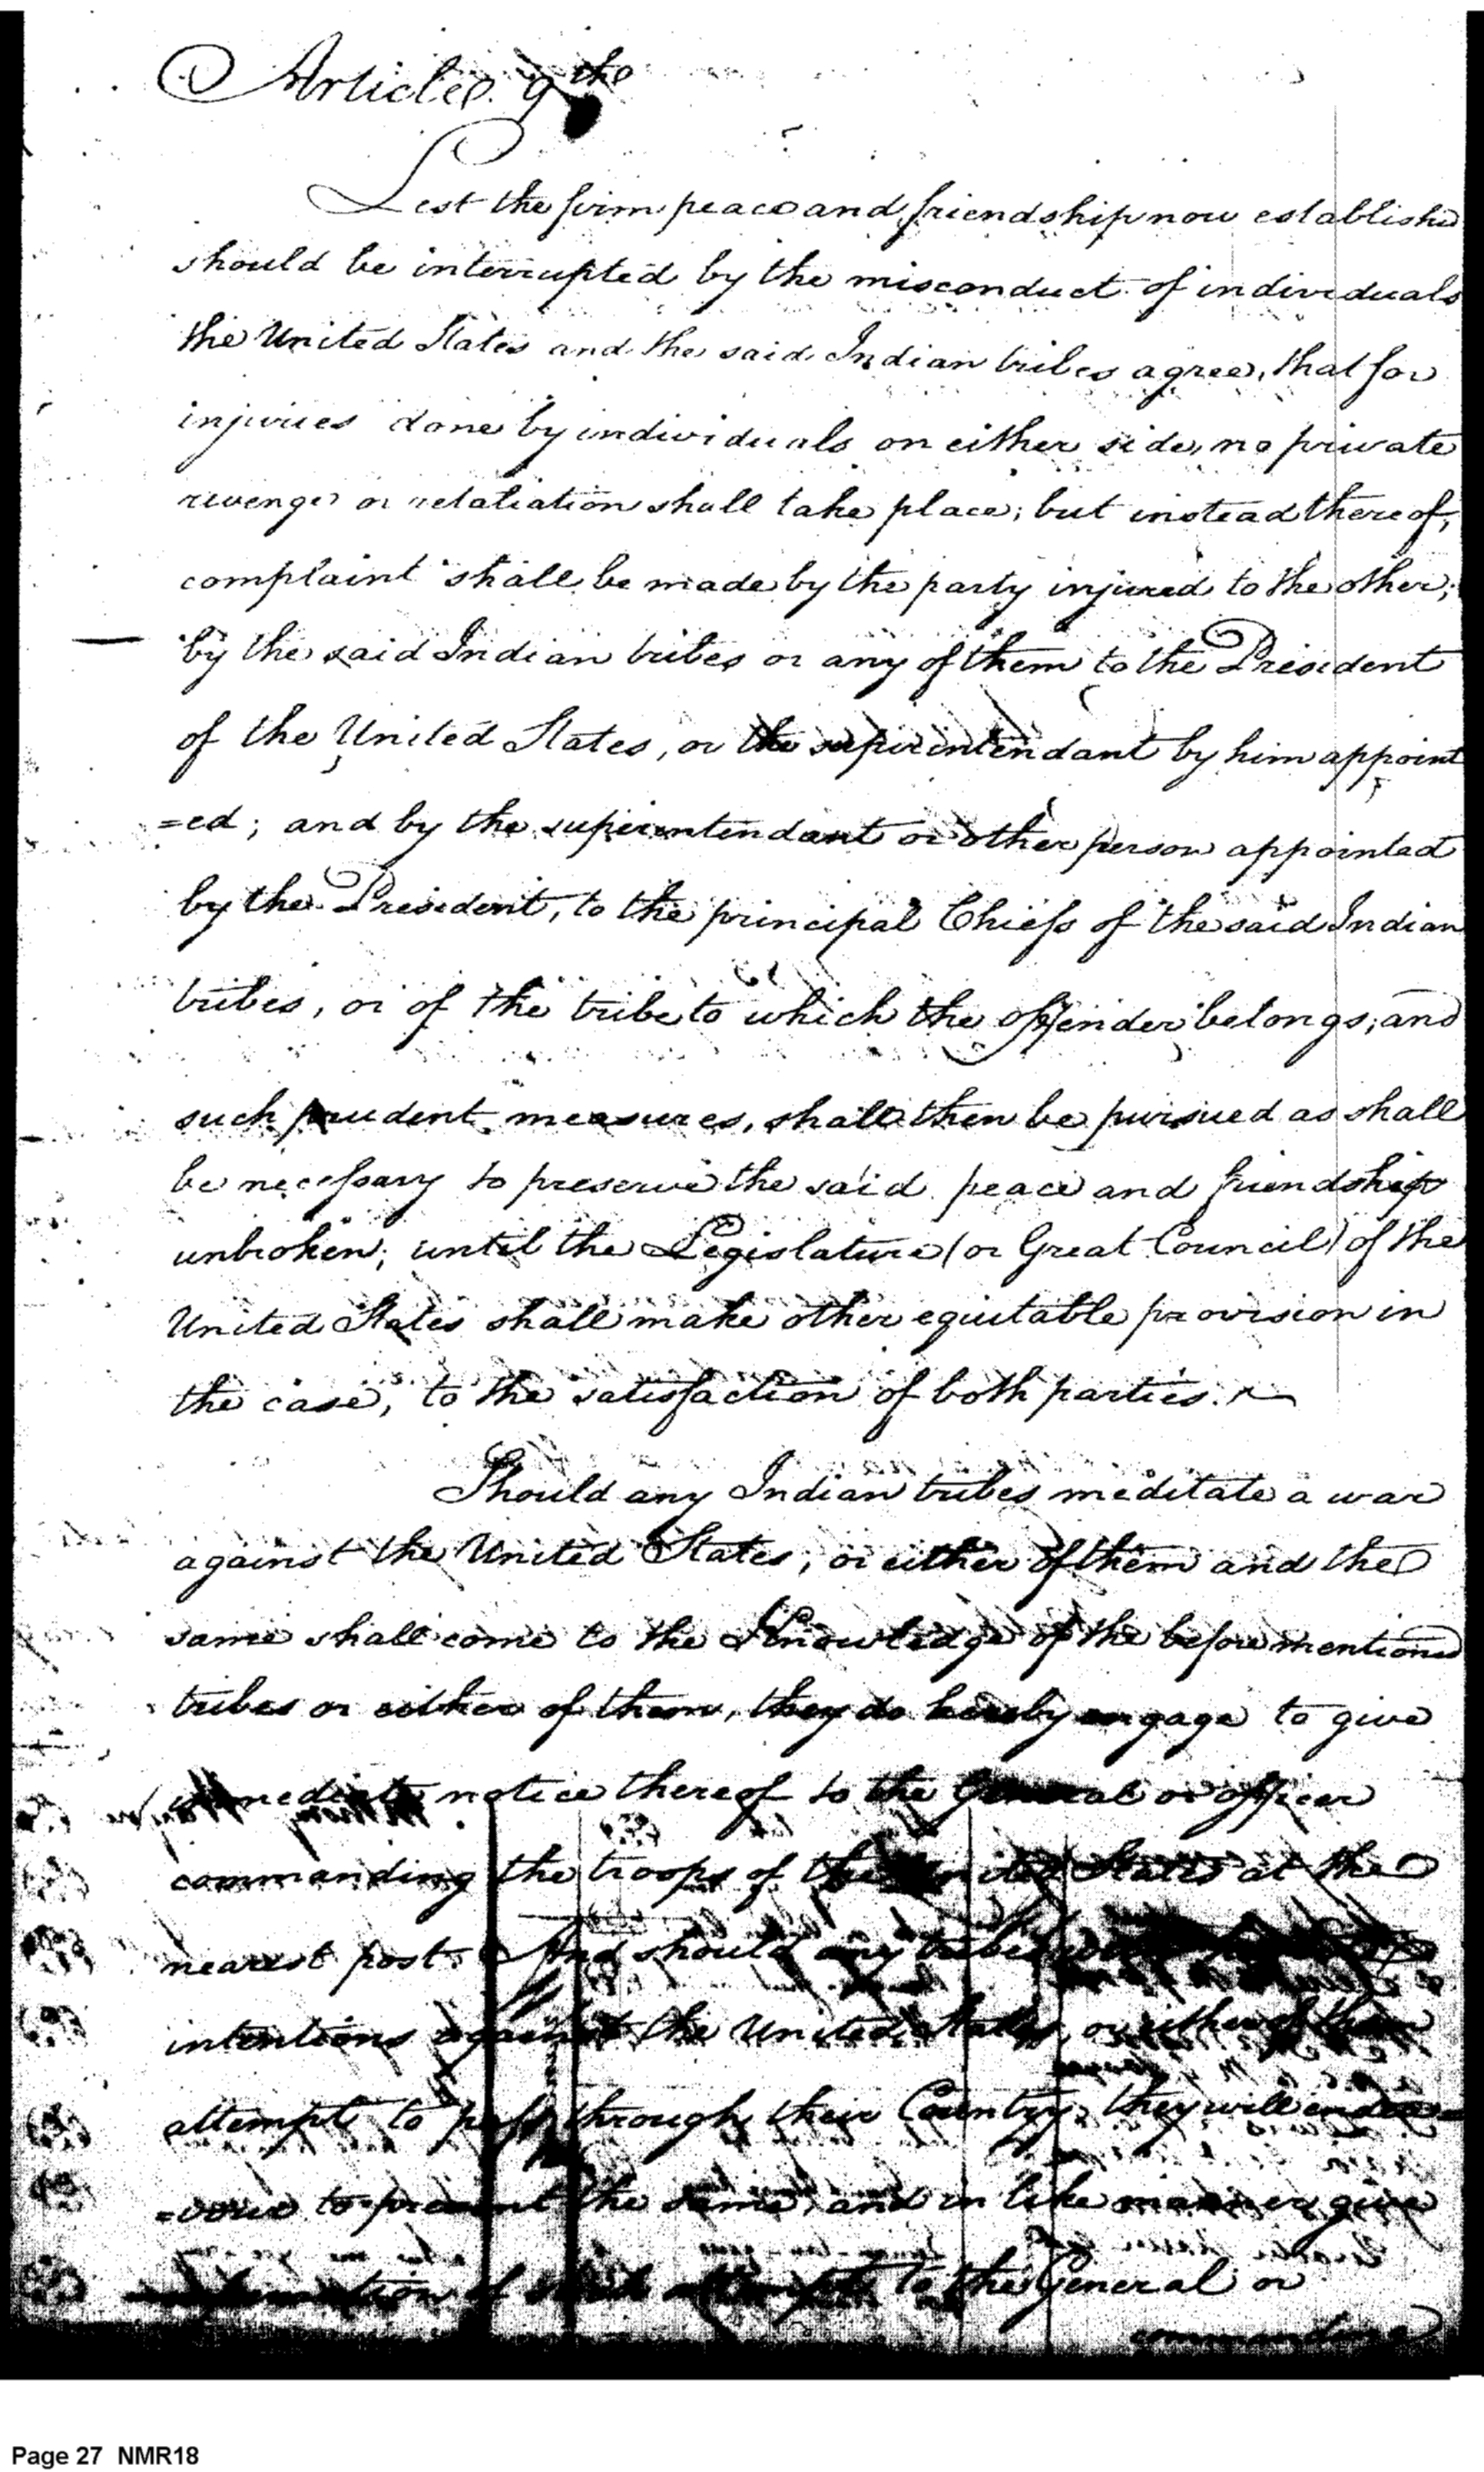 Article 9th
Lest the firm peace and friendship now established
should be interrupted by the misconduct of individuals
the United States and the said Indian tribes agree, that for
injuries done by individuals on either side, no private
revenge or retaliation shall take place; but instead thereof,
complaint shall be made by the party injured to the other;
by the said Indian tribes or any of them to the President
of the United States, or the superintendant by him appoint
=ed; and by the superintendant or other person appointed
by the President, to the principal Chiefs of the said Indian
tribes, or of the tribe to which the offender belongs; and
such prudent measures, shall then be pursued as shall
be necessary to preserve the said peace and friendship
unbroken; until the Legislature (or Great Council) of the
United States shall make other equitable provision in
the case, to the satisfaction of both parties.
Should any Indian tribes meditate a war
against the United States, or either of them and the
same shall come to the Knowledge of the before mentioned
tribes or either of them, they do hereby engage to give
immediate notice thereof to the General or officer
commanding the troops of the United States at the
nearest post. And should any tribe
intentions against the United States, or either of them
attempt to pass through their Country, they will endea=
=vour to prevent the same, and in like manner give
information of such attempt to the General or
commanding
Page 27 NMR18